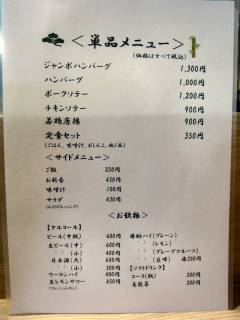 ＜単品メニュー＞
(価格はすべて税込)
ジャンボハンバーグ 1,300円
ハンバーグ 1,000円
ポークソテー 1,200円
チキンソテー 900円
若鶏唐揚 900円
定食セット 350円
(ごはん、味噌汁、おしんこ、他1品)
＜サイドメニュー＞
ご飯 250円
お新香 450円
味噌汁 100円
サラダ 430円
＜お飲物＞
【アルコール】
ビール(中瓶) 600円
生ビール(中) 600円
〃 (小) 400円
日本酒(大) 600円
〃 (小) 300円
ウーロンハイ 400円
生レモンサワー 400円
樽酎ハイ(プレーン)
〃 (レモン)
〃 (グレープフルーツ)
〃 (巨峰) 各350円
【ソフトドリンク】
コーラ(瓶) 200円
烏龍茶 200円